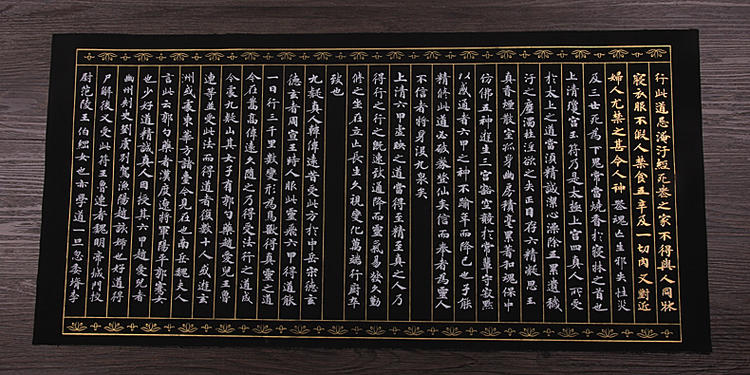 行此道忌淹汙經死喪之家不得與人同牀
寢衣服不假人禁食五辛及一切肉又對近
婦人尤禁之甚令人神喪魂亡生邪失性災
及三世死為下鬼常當燒香於寢牀之首也
上清瓊宮玉符乃是太極上宮四真人所受
於太上之道當須精誠潔心澡除五累遺穢
汙之塵濁杜淫欲之失正目存六精凝思玉
真香煙散室孤身幽房積毫累著和魂保中
仿佛五神遊生三宮豁空競於常輩守寂默
以感通者六甲之神不踰年而降已也子能
精修此道必破券登仙矣信而奉者為靈人
不信者將身沒九泉矣
上清六甲虛映之道當得至精至真之人乃
得行之行之既速致通降而靈氣易發久勤
修之坐在立亡長生久視變化萬端行廚卒
致也
九疑真人韓偉遠昔受此方於中岳宋德玄
德玄者周宣王時人服此靈飛六甲得道能
一日行三千里數變形為鳥獸得真靈之道
今在嵩高偉遠久隨之乃得受法行之道成
今處九疑山其女子有郭勺藥趙愛兒王魯
連等並受此法而得道者復數十人或遊玄
洲或處東華方諸臺今見在也南岳魏夫人
言此云郭勺藥者漢度遼將軍陽平郭騫女
也少好道精誠真人因授其六甲趙愛兒者
幽州刺史劉虞別駕漁陽趙該姊也好道得
尸解後又受此符王魯連者魏明帝城門校
尉范陵王伯綱女也亦學道一旦忽委婿李